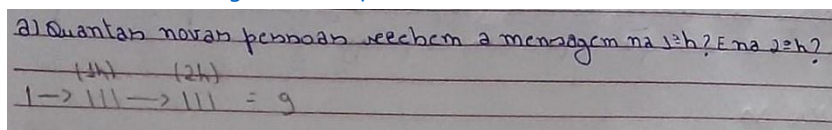 a) Quantas novas pessoas recebem a mensagem na 1ª h? E na 2ª h?
(1h) (2h)
1 -> 111 -> 111 = 9